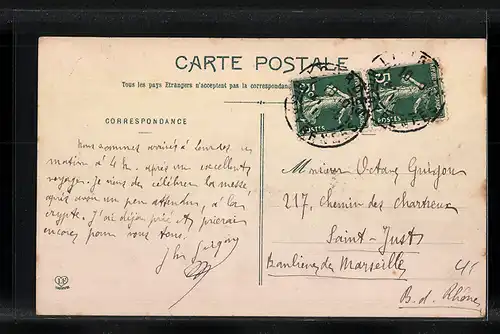 CARTE POSTALE
Tous les pays Etrangers n'acceptent pas la correspondan
CORRESPONDANCE
Nous sommes arrivés à Lourdes ce
matin à 4 h. après un excellent
voyage. Je viens de célébrer la messe,
après avoir un peu attendu, à la
crypte. J'ai déjà prié et prierai
encore pour vous tous.
Monsieur Octave Guigou
217, chemin des Chartreux
Saint-Just
Banlieue de Marseille
B. d. Rhône
5c
POSTES
5c
POSTES